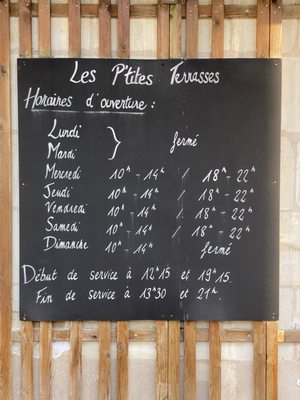 Les P'tites Terrasses
Horaires d'ouverture :
Lundi
Mardi } fermé
Mercredi 10h - 14h / 18h - 22h
Jeudi 10h - 14h / 18h - 22h
Vendredi 10h - 14h / 18h - 22h
Samedi 10h - 14h / 18h - 22h
Dimanche 10h - 14h fermé
Début de service à 12h15 et 19h15.
Fin de service à 13h30 et 21h.